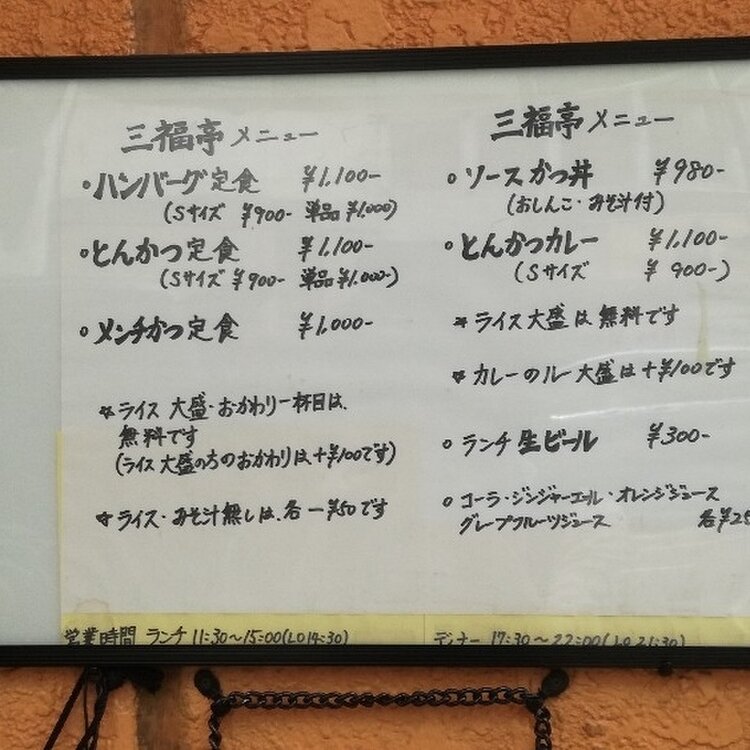 三福亭 メニュー
・ハンバーグ定食 ¥1,100-
(Sサイズ ¥900- 単品¥1,000)
・とんかつ定食 ¥1,100-
(Sサイズ ¥900- 単品¥1,000-)
・メンチかつ定食 ¥1,000-
☆ライス 大盛・おかわり一杯目は、
無料です
(ライス大盛のちのおかわりは+¥100です)
☆ライス・みそ汁無しは、各-¥50です
三福亭 メニュー
・ソースかつ丼 ¥980-
(おしんこ・みそ汁付)
・とんかつカレー ¥1,100-
(Sサイズ ¥900-)
☆ライス大盛は無料です
☆カレーのルー大盛は+¥100です
○ランチ生ビール ¥300-
○コーラ・ジンジャーエール・オレンジジュース
グレープフルーツジュース 各¥25
営業時間 ランチ 11:30～15:00(LO14:30)
ディナー 17:30～22:00(LO21:30)